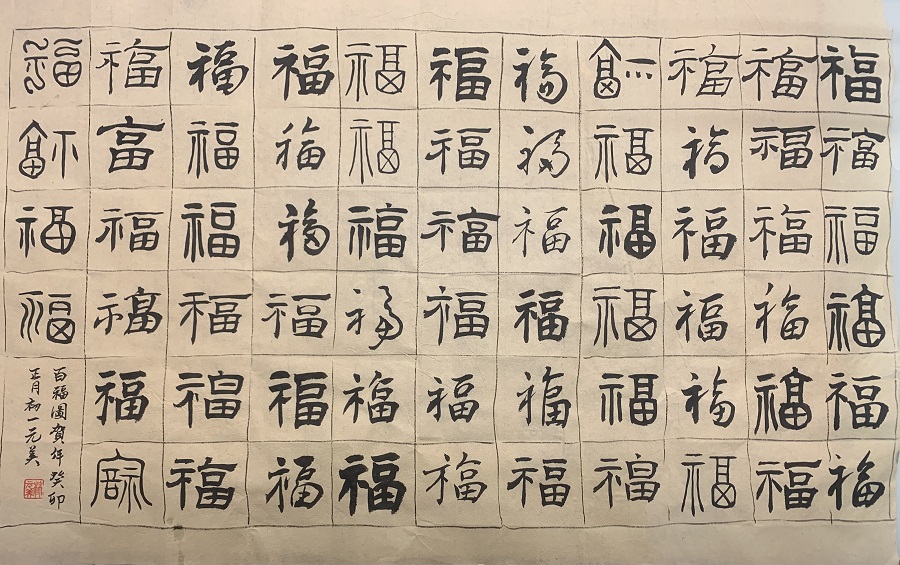 福福福福福福
福福福福福福
福福福福福福
福福福福福福
福福福福福福
福福福福福福
福福福福福福
福福福福福福
福福福福福福
福富福福福福
福福福福
百福圖賀年癸卯
正月初一元美